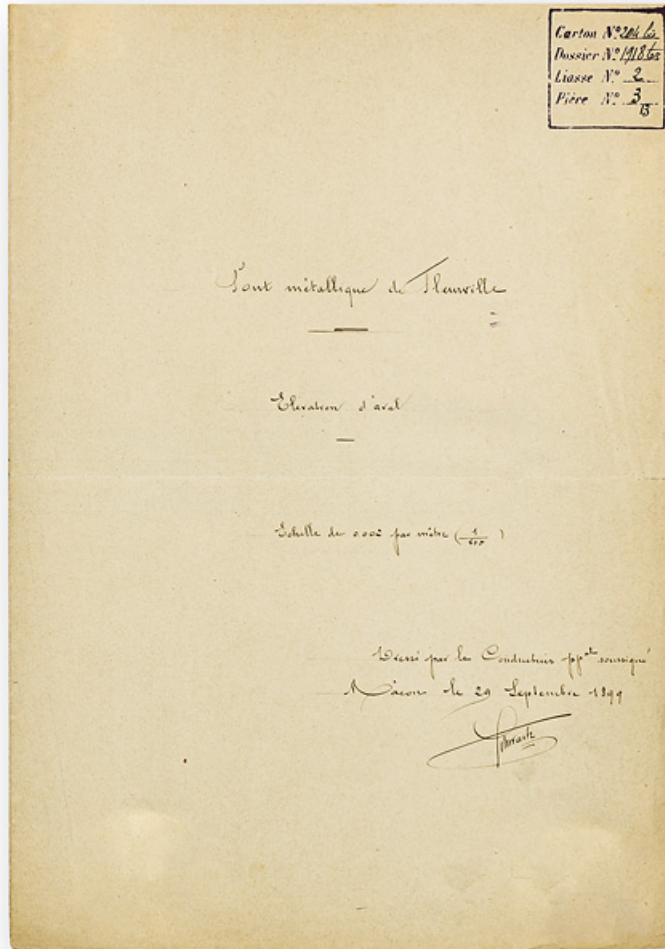 Carton N° 204 bis
Dossier N° 1918 ter
Liasse N° 2
Pièce N° 3
13
Pont métallique de Fleurville
Elévation d'aval
Echelle de 0.002 par mètre (1/500)
Dressé par le Conducteur ppal soussigné
Mâcon le 29 Septembre 1899